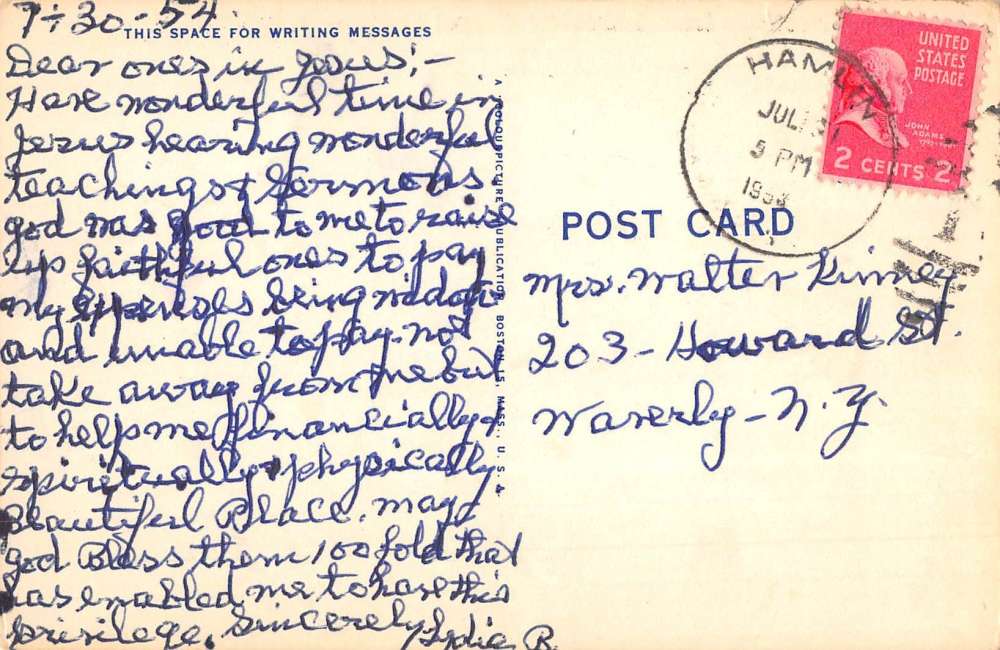 7-30-54.
THIS SPACE FOR WRITING MESSAGES
Dear ones in Jesus:-
Have wonderful time in
Jesus hearing wonderful
teachings & Sormons
god was good to me to raise
up faithful ones to pay
my expenses being widow
and unable to pay. not
take away from me but
to help me financially &
spiritually & physically
Beautiful Place. may
god Bless them 100 fold that
has enabled me to have this
privilege. Sincerely
Lydia B.
A COLOURPICTURE PUBLICATION, BOSTON 15, MASS., U. S. A.
HAMLIN
JUL 31
5 PM
UNITED
STATES
POSTAGE
JOHN
ADAMS
2 CENTS 2
POST CARD
Mrs. Walter Kinney
203 - Howard St.
Waverly - N. Y.